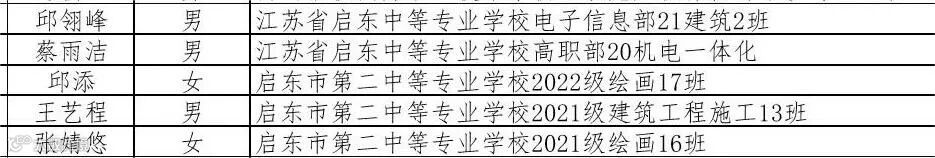 邱翎峰 男 江苏省启东中等专业学校电子信息部21建筑2班
蔡雨洁 男 江苏省启东中等专业学校高职部20机电一体化
邱添 女 启东市第二中等专业学校2022级绘画17班
王艺程 男 启东市第二中等专业学校2021级建筑工程施工13班
张婧悠 女 启东市第二中等专业学校2021级绘画16班